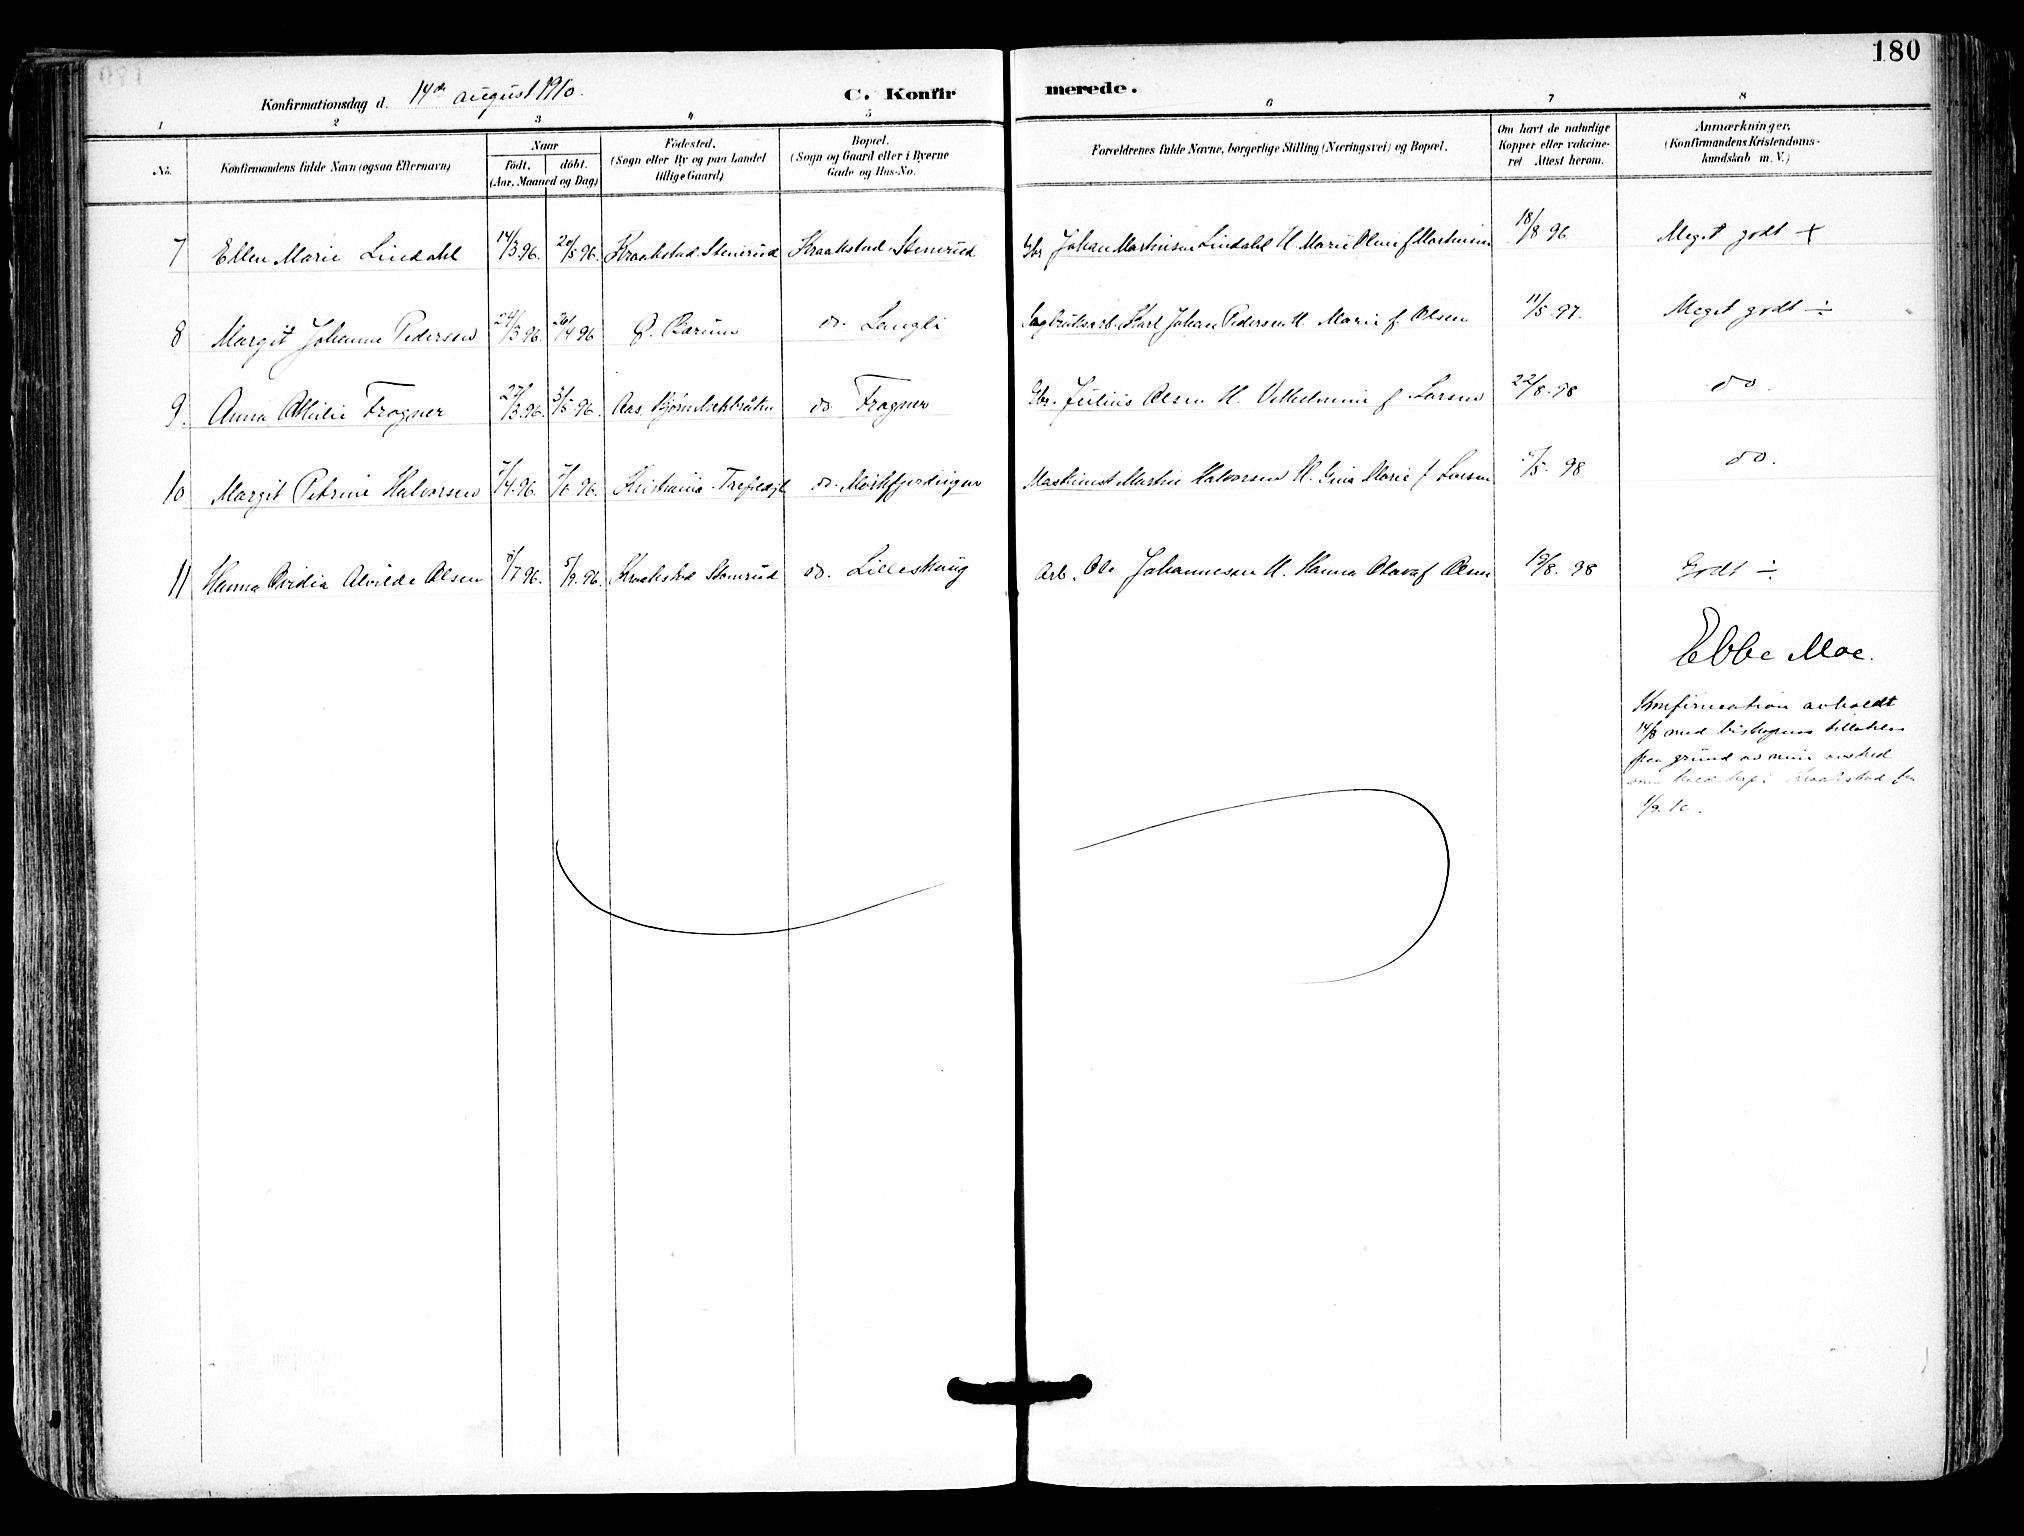 180
Konfirmationsdag d. 14de august 1910.
C. Konfirmerede.
1 2 3 4 5 6 7 8
No.
Konfirmandens fulde Navn (ogsaa Efternavn)
Naar
født. døbt.
(Aar, Maaned og Dag)
Fødested.
(Sogn eller By og paa Landet
tillige Gaard)
Bopæl.
(Sogn og Gaard eller i Byerne
Gade og Hus-No.
Forældrenes fulde Navne, borgerlige Stilling (Næringsvei) og Bopæl.
Om havt de naturlige
Kopper eller vakcine-
ret. Attest herom.
Anmærkninger.
(Konfirmandens Kristendoms-
kundskab m. V.)
7 Ellen Marie Lindahl 14/3 96. 20/5 96. Kraakstad Stenerud Kraakstad Stenerud Gbr Johan Martinsen Lindahl H. Marie Oline f Martinsen 18/8 96 Meget godt +
8 Margit Johanne Pedersen 24/3 96. 26/4 96 Ø. Bærum do. Langli Sagbruksarb. Karl Johan Pedersen H. Marie f Olsen 11/5 97. Meget godt ÷
9. Anna Othilie Frogner 27/3 96. 3/5 96. Aas, do. Frogner Gbr. Julius Olsen H. Vilhelmine f. Larsen 22/8. 98 do.
10 Margit Petrine Halvorsen 7/4 96. 7/6 96. Kristiania do. Mørkfjerdingen Maskinist Martin Halvorsen H. Gina Marie f Larsen /5 98 do.
11 Hanna Ovidia Alvilde Olsen /7 96. 5/9. 96. Kraakstad Stenerud do. Lilleskaug Arb. Ole Johannesen H. Hanna Olava f Olsen 19/8. 98 Godt ÷.
Ebbe Moe.
Konfirmation avholdt
14/8 med biskopens tillatelse
paa grund av min avsked
som Kraakstad fra
1/9. 10.